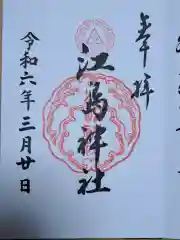 奉拝
江島神社
令和六年三月廿日